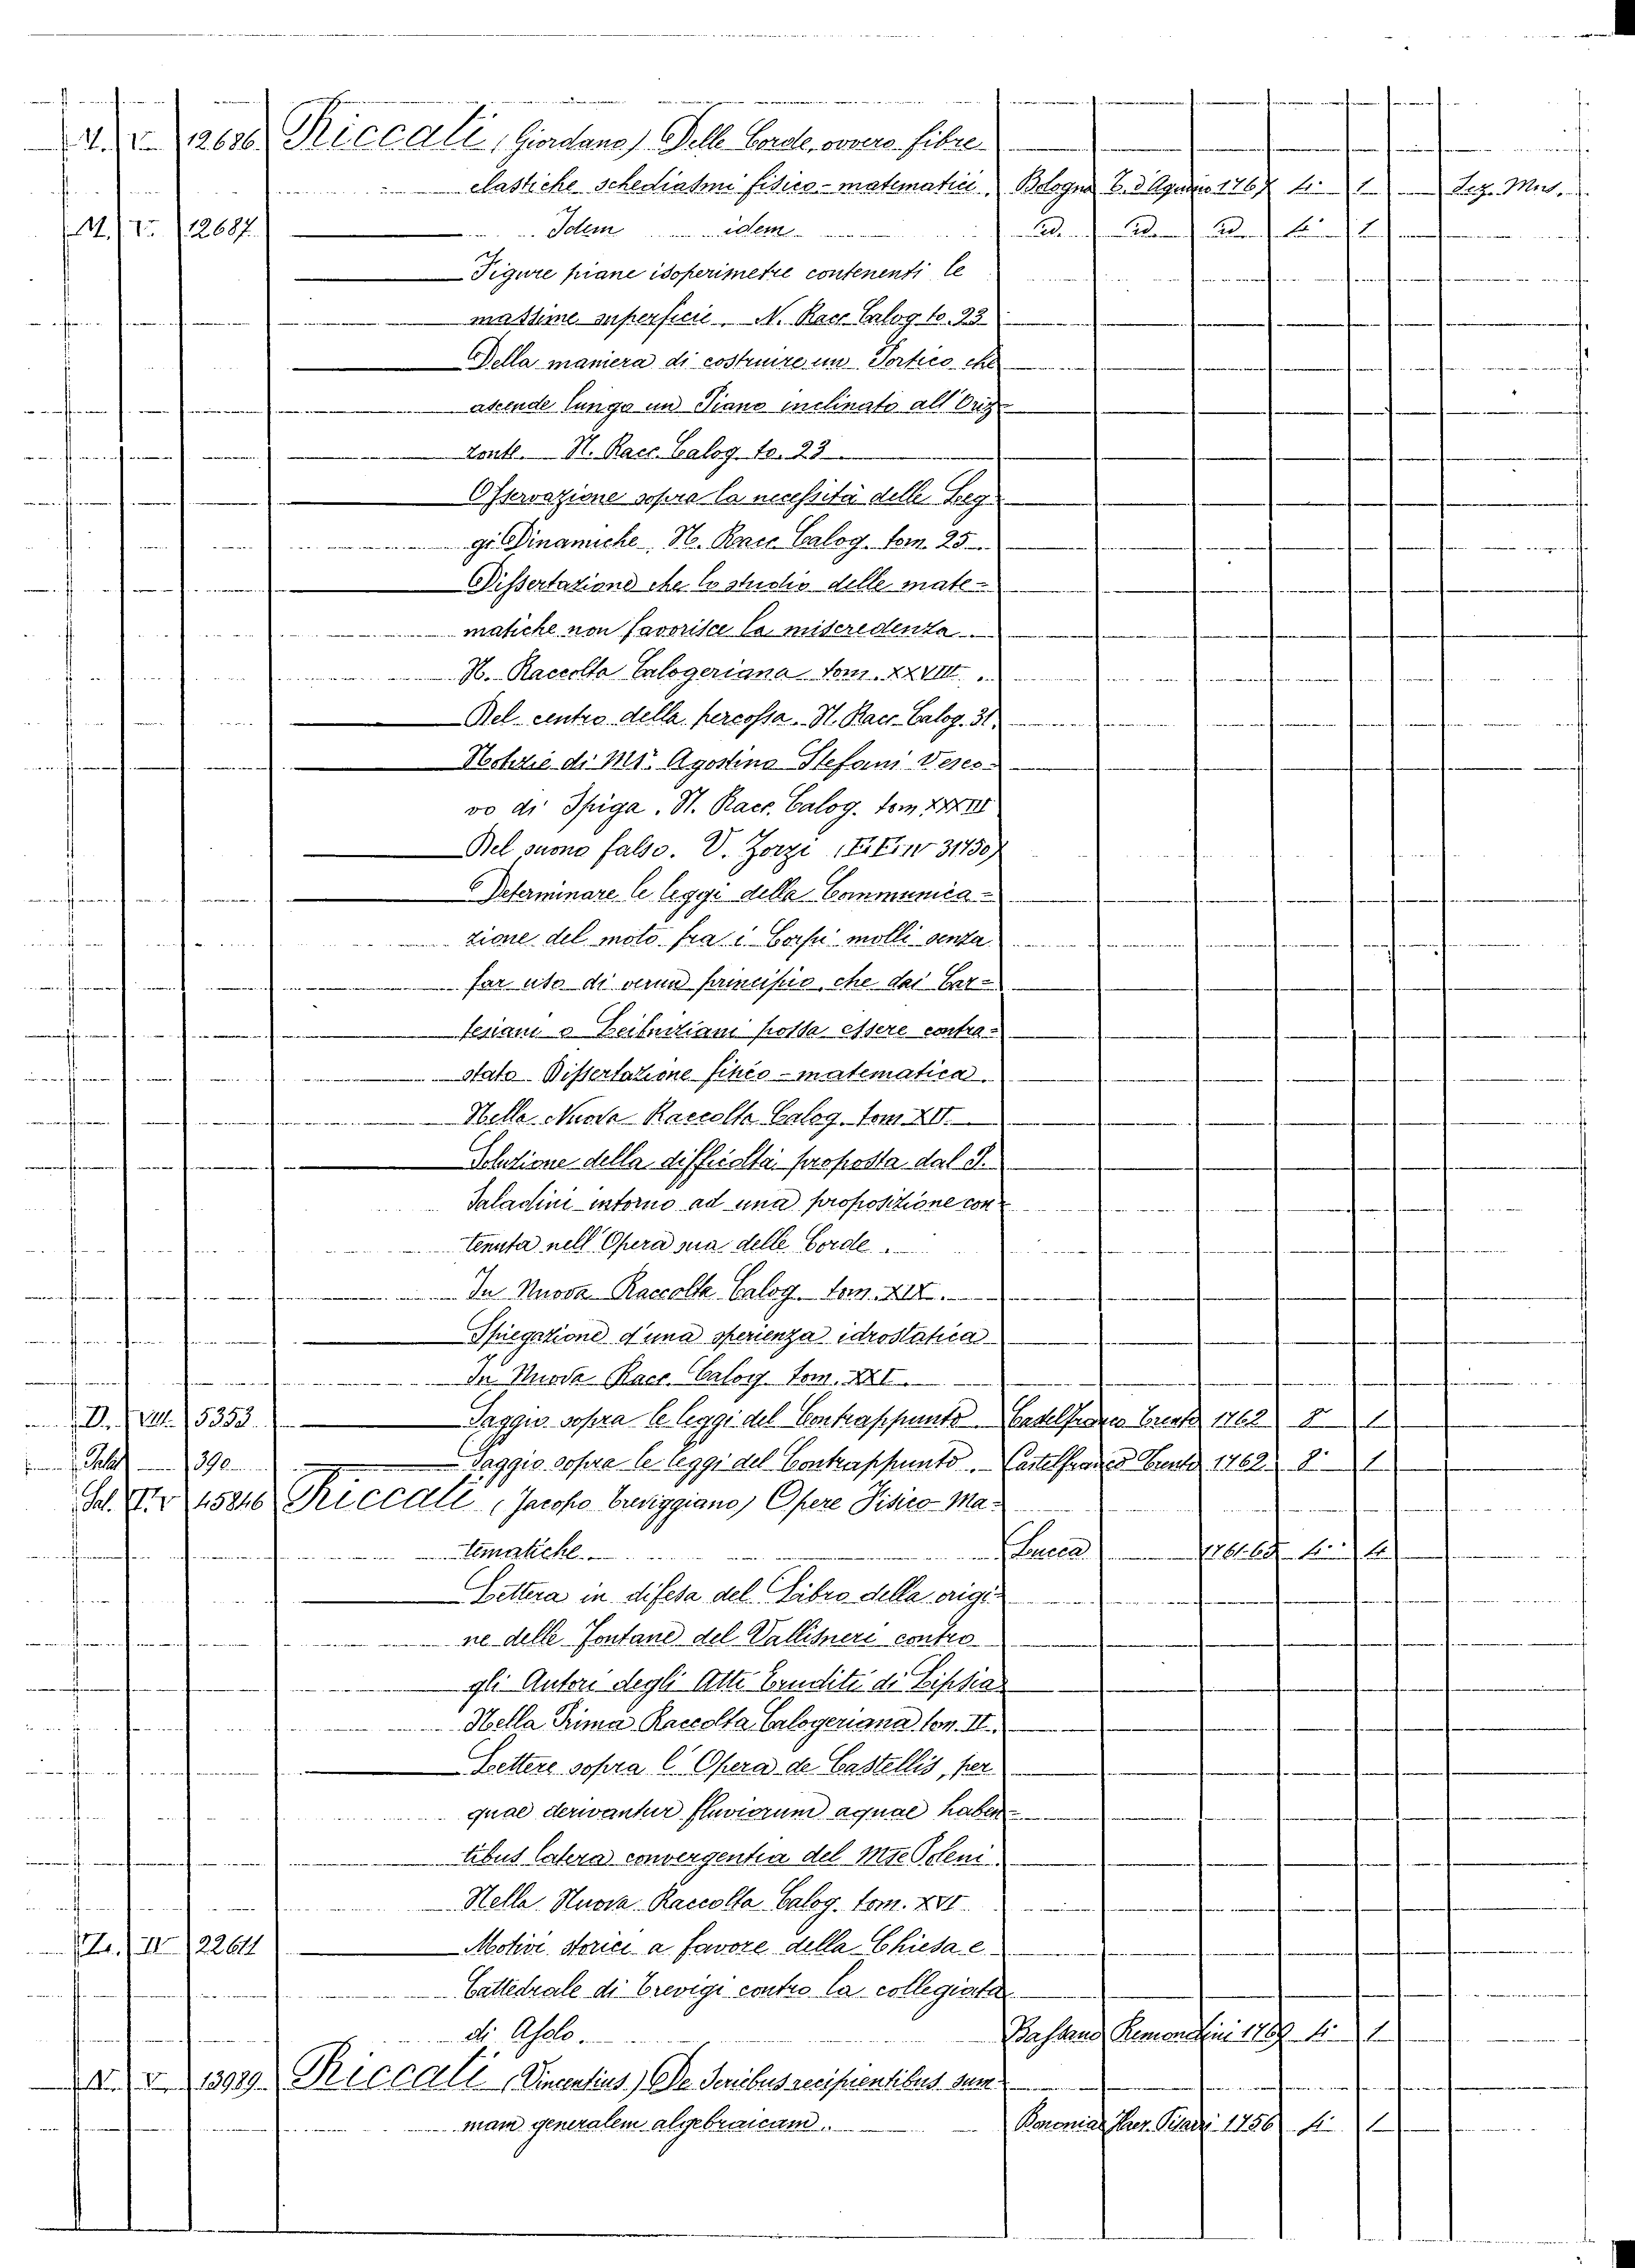 M. V. 12686 Riccati (Giordano) Delle Corde, ovvero fibre
elastiche schediasmi fisico-matematici. Bologna T. d'Aquino 1767 4.° 1 Leg. Mus.
M. V. 12687 Idem idem id. id. id. 4.° 1
Figure piane isoperimetre contenenti le
massime superficie. N. Racc. Calog. to. 23
Della maniera di costruire un Portico che
ascende lungo un Piano inclinato all' Oriz-
zonte. N. Racc. Calog. to. 23.
Osservazione sopra la necessità delle Leg-
gi Dinamiche. N. Racc. Calog. tom. 25.
Dissertazione che lo studio delle mate-
matiche non favorisce la miscredenza.
N. Raccolta Calogeriana tom. XXVIII.
Del centro della percossa. N. Racc. Calog. 31.
Notizie di Mr. Agostino Stefani Vesco-
vo di Spiga. N. Racc. Calog. tom. XXXIII
Del suono falso. V. Zorzi 31730)
Determinare le leggi della Communica-
zione del moto fra i Corpi molli senza
far uso di verun principio, che dai Car-
tesiani o Leibniziani possa essere contra-
stato Dissertazione fisico-matematica.
Nella Nuova Raccolta Calog. tom.
Soluzione della difficoltà proposta dal P.
Saladini intorno ad una proposizione con-
tenuta nell' Opera sua delle Corde.
In Nuova Raccolta Calog. tom. XIX.
Spiegazione d'una sperienza idrostatica
In Nuova Racc. Calog. tom. XXI.
D. VIII. 5353 Saggio sopra le leggi del Contrappunto Castelfranco Trento 1762 8° 1
390 Saggio sopra le leggi del Contrappunto. Castelfranco Trento 1762 8° 1
Sal. 45846 Riccati (Jacopo Trevigiano) Opere Fisico-Ma-
tematiche. Lucca 1761-65 4.° 4
Lettera in difesa del Libro della origi-
ne delle Fontane del Vallisneri contro
gli Autori degli Atti Eruditi di Lipsia
Nella Prima Raccolta Calogeriana tom. II.
Lettere sopra l' Opera de Castellis, per
quae derivantur fluviorum aquae haben-
tibus latera convergentia del Mse Poleni.
Nella Nuova Raccolta Calog. tom. XVI
IV 22611 Motivi storici a favore della Chiesa e
Cattedrale di Trevigi contro la collegiata
di Asolo. Bassano Remondini 1769 4.° 1
V. 13989 Riccati (Vincentius) De Seribus recipientibus sum-
mam generalem algebraicam. Bononiae Haer. Pisarri 1756 4.° 1